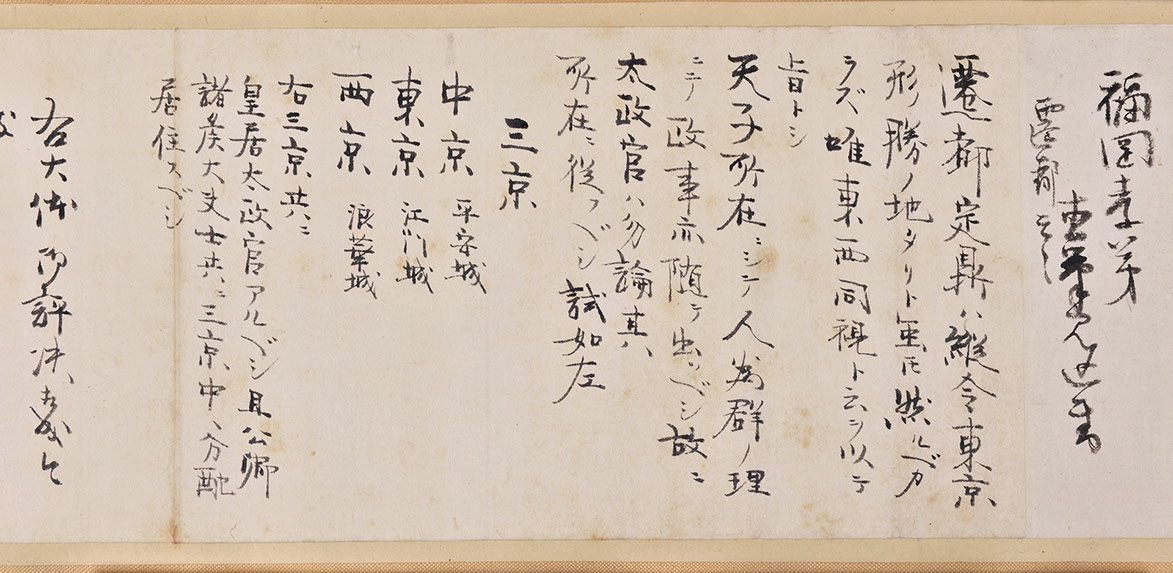 福岡孝弟
遷都之
遷都定鼎ハ縦令東京
形勝ノ地タリト虽𪜈然ルベカ
ラズ唯東西同視ト云ヲ以テ
旨トシ
天子所在ニシテ人為群ノ理
ニテ政事亦随テ出ヅベシ故ニ
太政官ハ勿論其
所在ニ従フベシ試如左
三京
中京 平安城
東京 江戸城
西京 浪華城
右三京共ニ
皇居太政官アルベシ且公卿
諸侯大夫士共ニ三京中ヘ分配
居住スベシ
右大体御評決